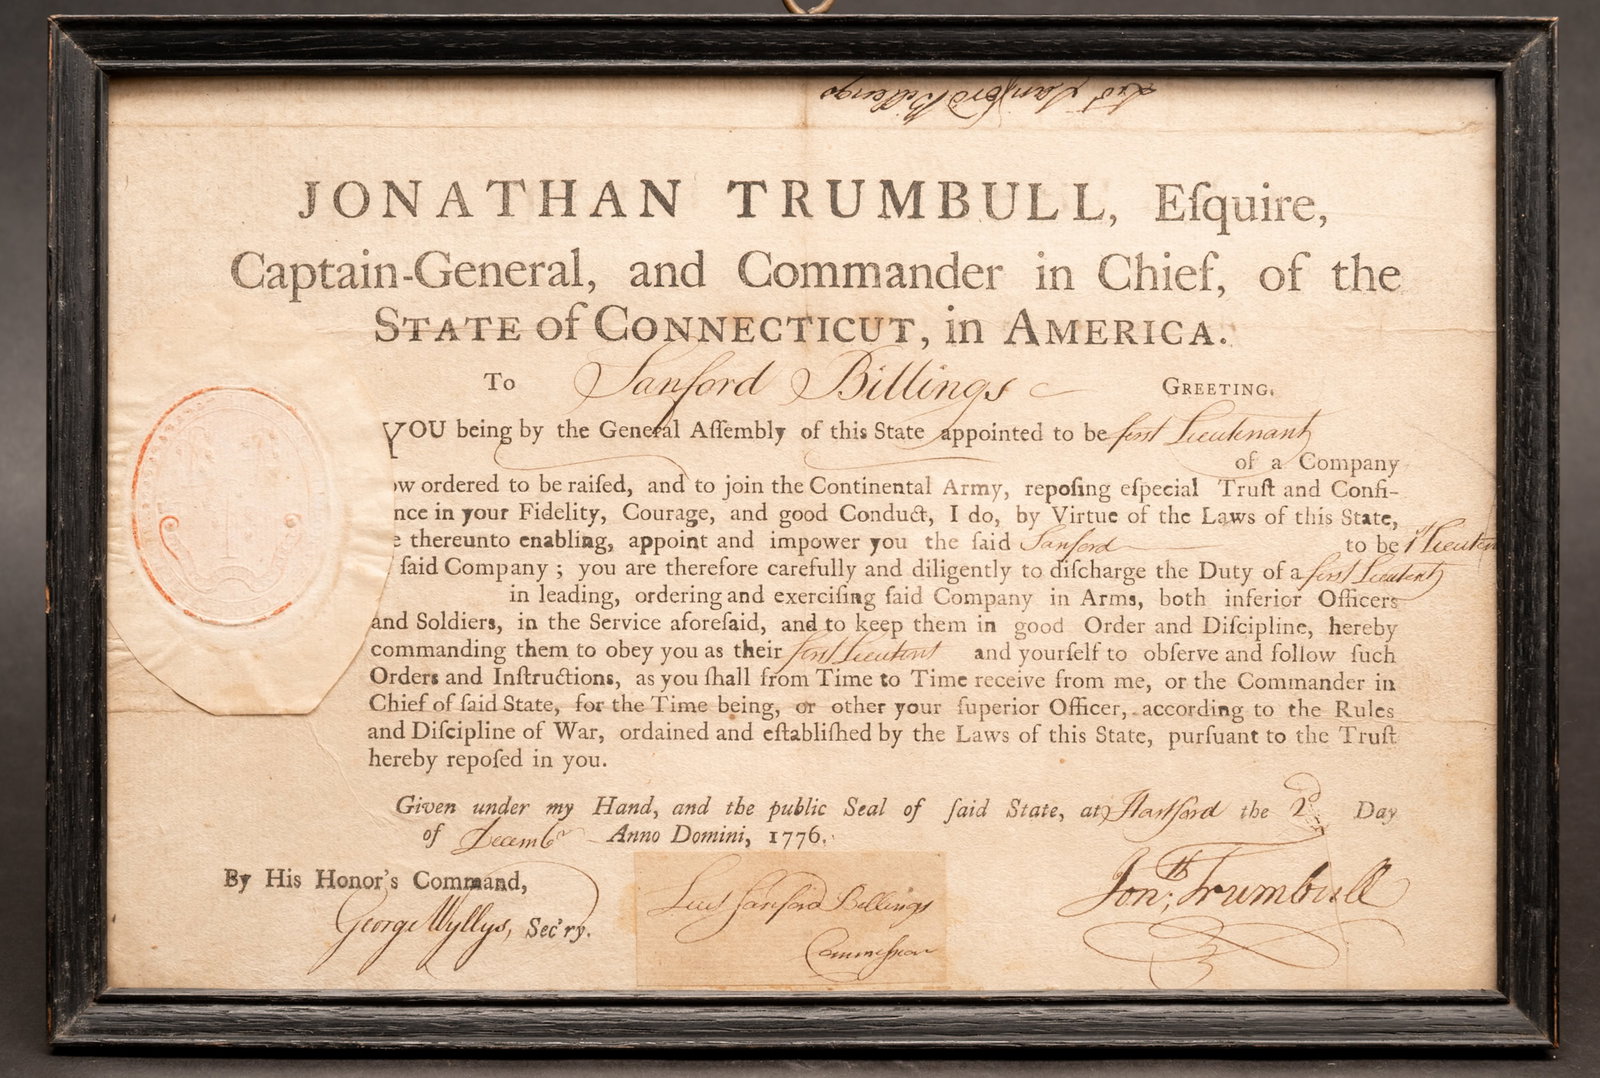 Lieut Sanford Billings
JONATHAN TRUMBULL, Eſquire,
Captain-General, and Commander in Chief, of the
STATE of CONNECTICUT, in AMERICA.
To Sanford Billings GREETING.
YOU being by the General Aſſembly of this State appointed to be first Lieutenant
of a Company
ow ordered to be raiſed, and to join the Continental Army, repoſing eſpecial Truſt and Confi-
nce in your Fidelity, Courage, and good Conduct, I do, by Virtue of the Laws of this State,
e thereunto enabling, appoint and impower you the ſaid Sanford to be 1st Lieuten
ſaid Company; you are therefore carefully and diligently to diſcharge the Duty of a first Lieutent
in leading, ordering and exerciſing ſaid Company in Arms, both inferior Officers
and Soldiers, in the Service aforeſaid, and to keep them in good Order and Diſcipline, hereby
commanding them to obey you as their first Lieutent and yourſelf to obſerve and follow ſuch
Orders and Inſtructions, as you ſhall from Time to Time receive from me, or the Commander in
Chief of ſaid State, for the Time being, or other your ſuperior Officer, according to the Rules
and Diſcipline of War, ordained and eſtabliſhed by the Laws of this State, purſuant to the Truſt
hereby repoſed in you.
Given under my Hand, and the public Seal of ſaid State, at Hartford the 2d Day
of Decembr Anno Domini, 1776.
By His Honor's Command,
George Wyllys, Sec'ry.
Lieut Sanford Billings
Commission
Jonth; Trumbull